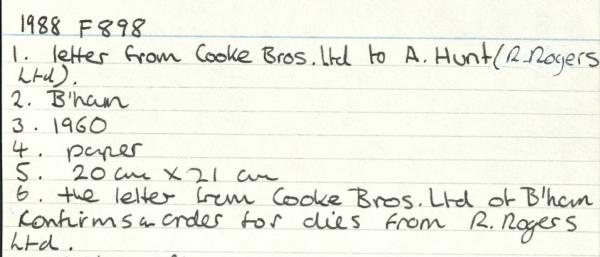 1988 F898
1. letter from Cooke Bros. Ltd to A. Hunt (R. Rogers
Ltd).
2. B'ham
3. 1960
4. paper
5. 20 cm x 21 cm
6. the letter from Cooke Bros. Ltd of B'ham
confirms an order for dies from R. Rogers
Ltd.